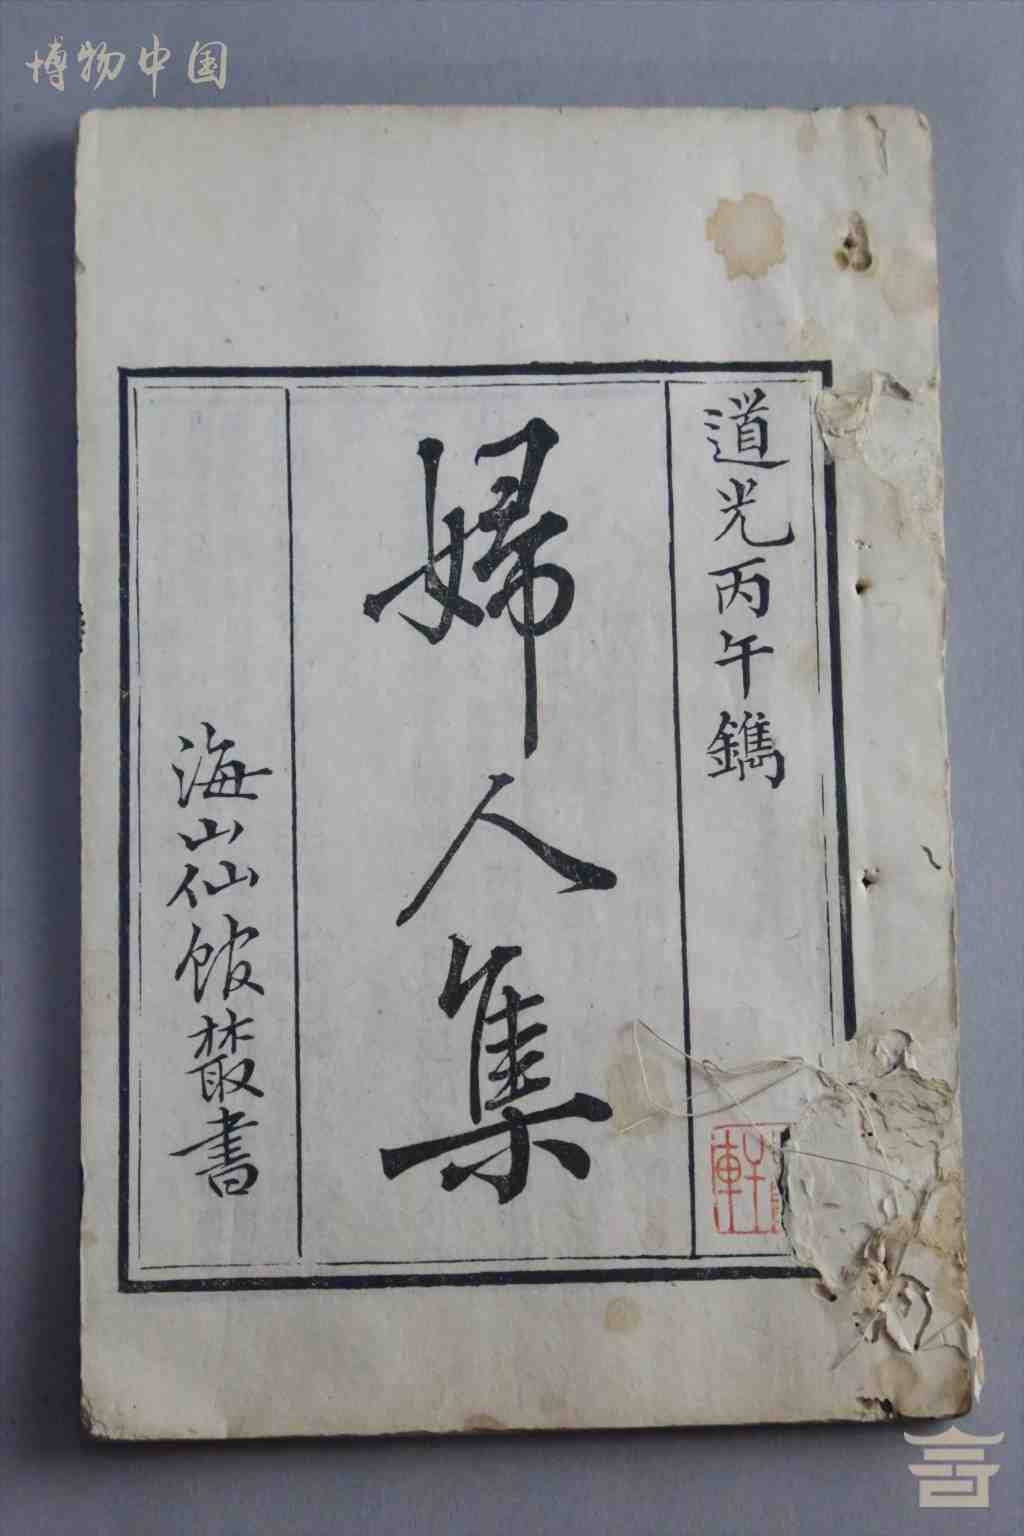 博物中国
道光丙午鐫
婦人集
海山仙館叢書
軒